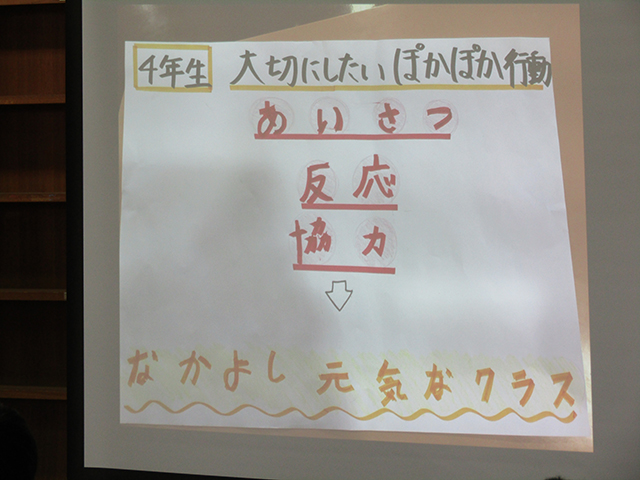 4年生 大切にしたい ぽかぽか行動
あいさつ
反応
協力
なかよし 元気なクラス